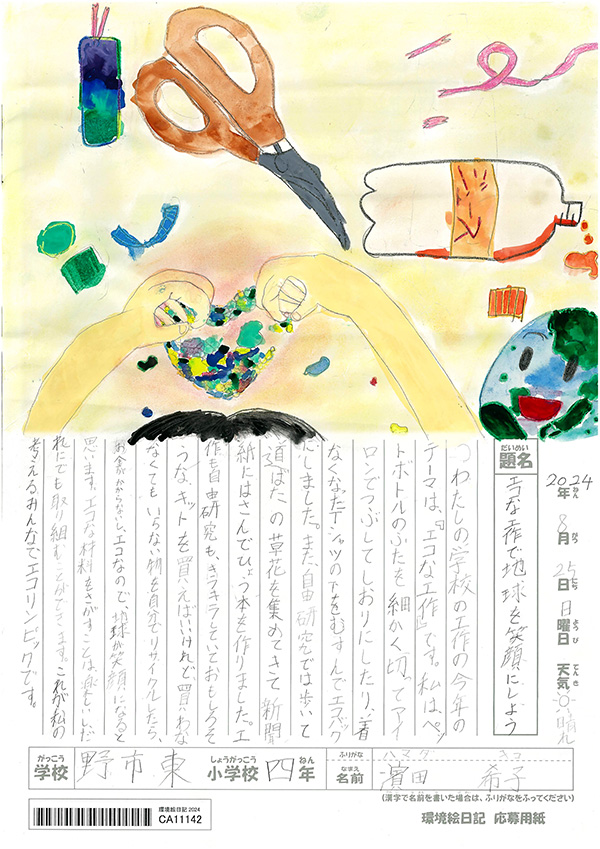 ジュース
2024年 8月 25日 日曜日 天気 晴れ
ねん がつ にち ようび てんき
だいめい
題名
エコな工作で地球を笑顔にしよう
わたしの学校の工作の今年の
テーマは、『エコな工作』です。私は、ペッ
トボトルのふたを細かく切ってアイ
ロンでつぶしてしおりにしたり、着
なくなったTシャツの下をむすんでエコバック
にしました。また、自由研究では歩いて
道ばたの草花を集めてきて新聞
紙にはさんでひょう本を作りました。工
作も自由研究も、キラキラしていておもしろそ
うな、キットを買えばいいけれど、買わな
くてもいらない物を自分でリサイクルしたら、
お金がかからないし、エコなので、地球が笑顔になると
思います。エコな材料をさがすことは楽しいし、だ
れにでも取り組むことができます。これが私の
考えるみんなでエコリンピックです。
がっこう しょうがっこう ねん
学校 野市東 小学校 四年
ふりがな ハマダ キコ
なまえ
名前 濵田 希子
(漢字で名前を書いた場合は、ふりがなをふってください)
環境絵日記 2024
CA11142
環境絵日記 応募用紙